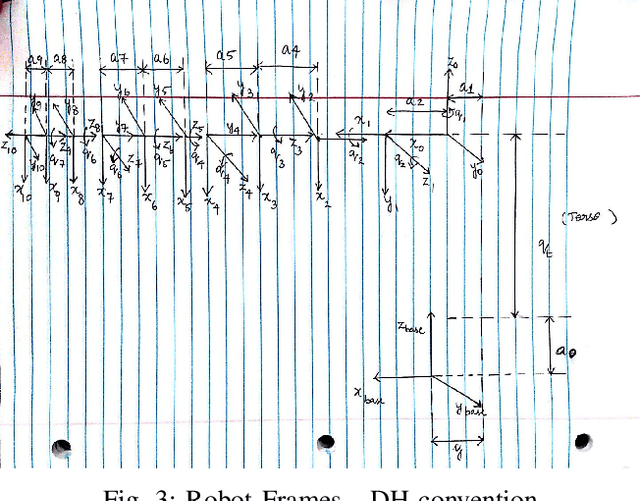 a9 a8 a7 a6 a5 a4
z0
a1
y9 y8 y6 y5 y3 y2 a2 q1
z10 z9 z8 y7 z6 z5 y4 z3 x1 x0
y10 q7 q6 q8 z7 q5 q4 z4 q3 q2 q2 z1 y0
x10 x9 x8 x7 x6 x5 x4 x3 x2 y1
(Torso)
qt
zbase
a0
xbase
ybase
y
Fig. 3: Robot Frames - DH convention